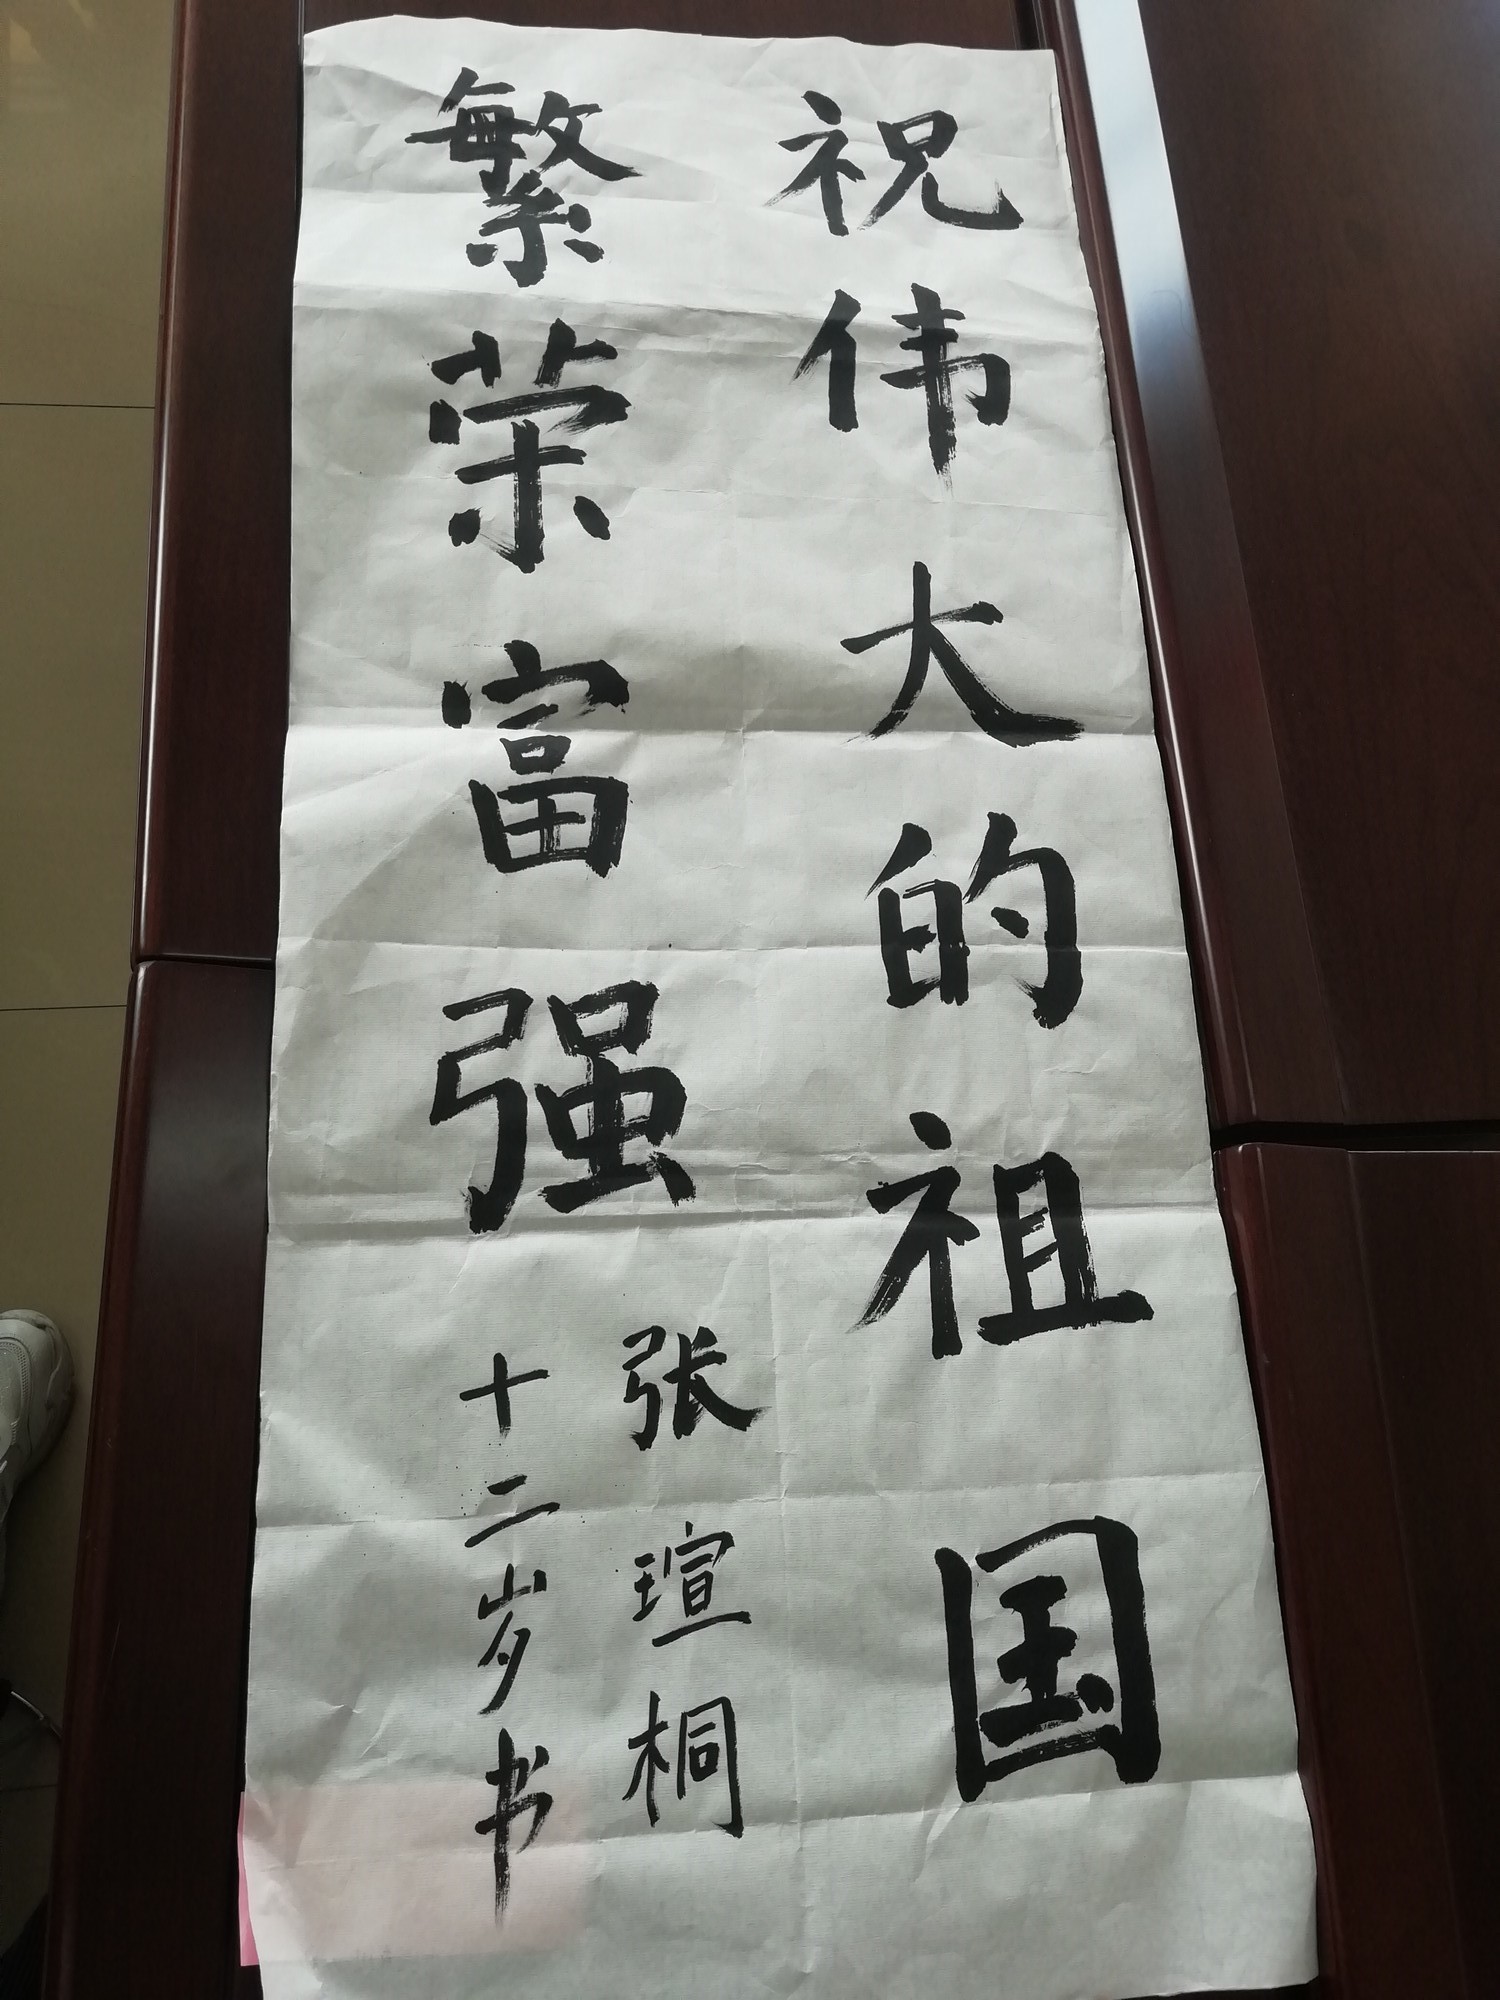 祝伟大的祖国
繁荣富强
张瑄桐
十二岁书